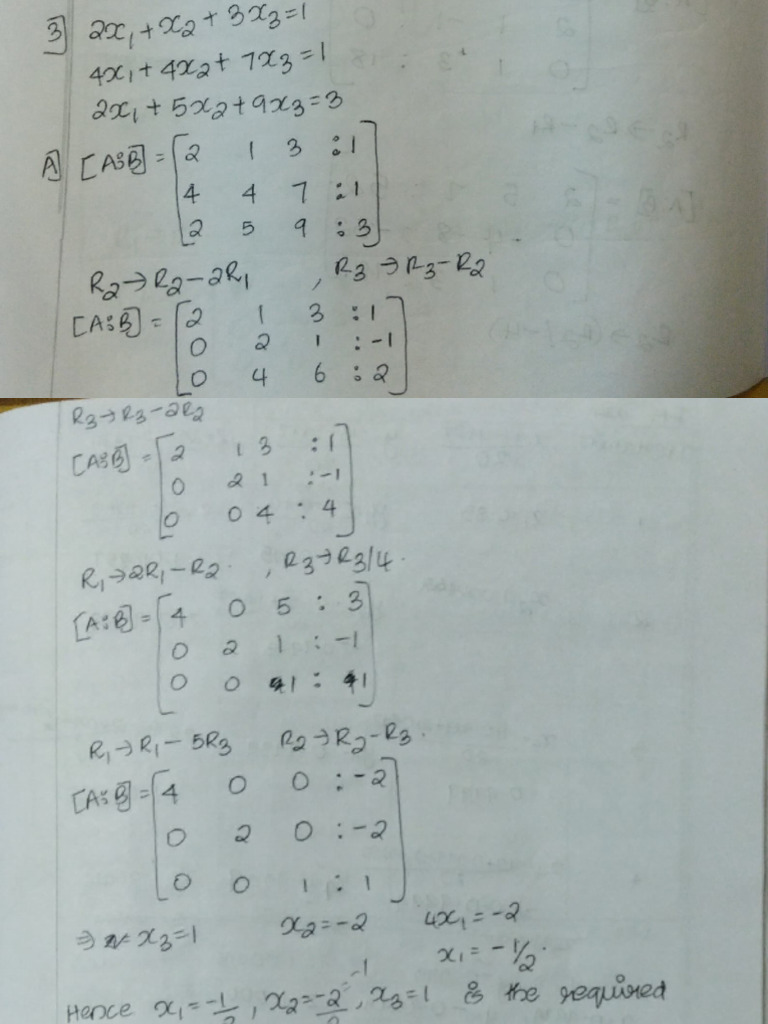 3] 2x₁+x₂+3x₃=1
4x₁+4x₂+7x₃=1
2x₁+5x₂+9x₃=3
A] [A:B] = [2 1 3 :1
4 4 7 :1
2 5 9 :3]
R₂→R₂-2R₁ , R₃→R₃-R₂
[A:B] = [2 1 3 :1
0 2 1 :-1
0 4 6 :2]
R₃→R₃-2R₂
[A:B] = [2 1 3 :1
0 2 1 :-1
0 0 4 :4]
R₁→2R₁-R₂. , R₃→R₃/4.
[A:B] = [4 0 5 : 3
0 2 1 : -1
0 0 1 : 1]
R₁→R₁-5R₃ R₂→R₂-R₃.
[A:B] = [4 0 0 :-2
0 2 0 :-2
0 0 1 : 1]
⇒ x₃=1 x₂=-2 4x₁=-2
x₁=-1/2.
Hence x₁=-1/2, x₂=-2/2=-1, x₃=1 is the required